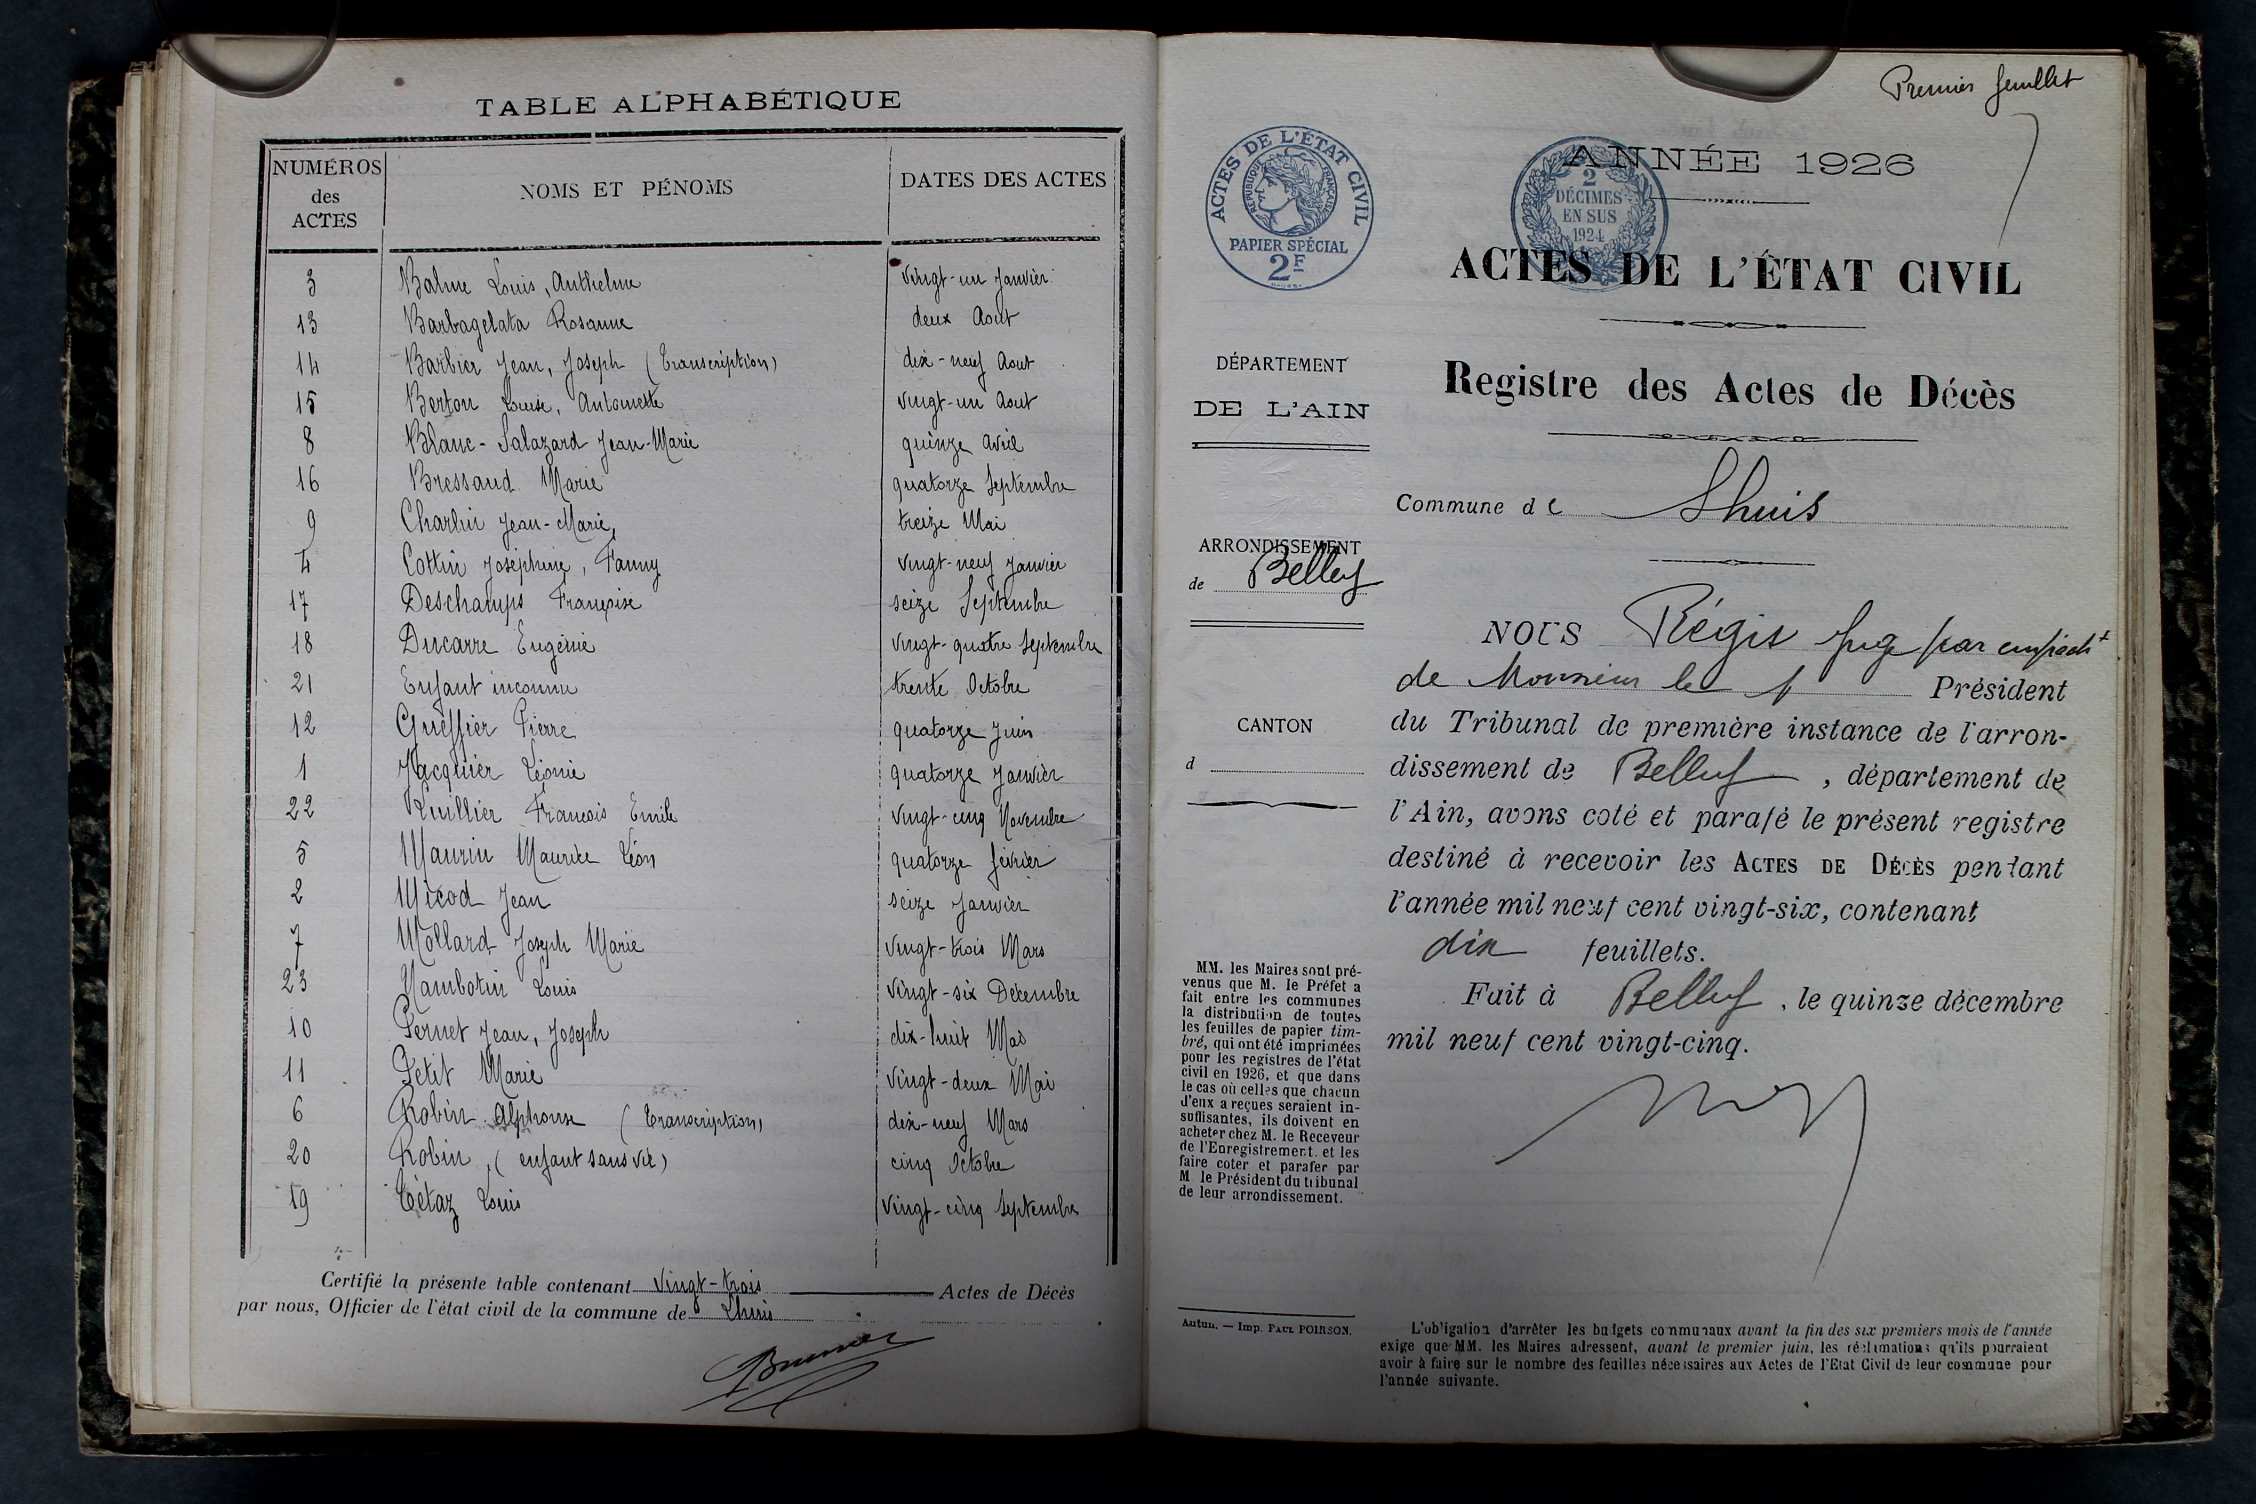 TABLE ALPHABÉTIQUE
NUMÉROS
des
ACTES
NOMS ET PÉNOMS
DATES DES ACTES
3 Balme Louis, Anthelme vingt-un Janvier
13 Barbagelata Rosanne deux Aout
14 Barbier Jean, Joseph (Transcription) dix-neuf Aout
15 Berton Louise, Antoinette vingt-un Aout
8 Blanc-Salazard Jean-Marie quinze Avril
16 Bressaud Marie quatorze Septembre
9 Charlin Jean-Marie, treize Mai
4 Cottin Joséphine, Fanny vingt-neuf Janvier
17 Deschamps Françoise seize Septembre
18 Ducarre Eugénie vingt-quatre Septembre
21 Enfant inconnu trente Octobre
12 Gueffier Pierre quatorze Juin
1 Jacquier Léonie quatorze Janvier
22 Lhuillier François Emile vingt-cinq Novembre
5 Maurin Maurice Léon quatorze février
2 Micod Jean seize Janvier
7 Mollard Joseph Marie vingt-trois Mars
23 Nambotin Louis vingt-six Décembre
10 Pernet Jean, Joseph dix-huit Mas
11 Petit Marie vingt-deux Mai
6 Robin Alphonse (Transcription) dix-neuf Mars
20 Robin (enfant sans vie) cinq Octobre
19 Tétaz Louis vingt-cinq Septembre
Certifié la présente table contenant vingt-trois Actes de Décès
par nous, Officier de l'état civil de la commune de Lhuis
Premier feuillet
ACTES DE L'ÉTAT CIVIL
RÉPUBLIQUE FRANÇAISE
PAPIER SPÉCIAL
2F
2
DÉCIMES
EN SUS
1924
ANNÉE 1926
ACTES DE L'ÉTAT CIVIL
Registre des Actes de Décès
DÉPARTEMENT
DE L'AIN
Commune de Lhuis
ARRONDISSEMENT
de Belley
CANTON
d
NOUS Régis Juge par empecht
de Monsieur le Président
du Tribunal de première instance de l'arron-
dissement de Belley, département de
l'Ain, avons coté et parafé le présent registre
destiné à recevoir les ACTES DE DÉCÈS pendant
l'année mil neuf cent vingt-six, contenant
dix feuillets.
Fait à Belley, le quinze décembre
mil neuf cent vingt-cinq.
MM. les Maires sont pré-
venus que M. le Préfet a
fait entre les communes
la distribution de toutes
les feuilles de papier tim-
bré, qui ont été imprimées
pour les registres de l'état
civil en 1926, et que dans
le cas où celles que chacun
d'eux a reçues seraient in-
suffisantes, ils doivent en
acheter chez M. le Receveur
de l'Enregistrement. et les
faire coter et parafer par
M le Président du tribunal
de leur arrondissement.
Autun. — Imp. PAUL POIRSON.
L'obligation d'arrêter les budgets communaux avant la fin des six premiers mois de l'année
exige que MM. les Maires adressent, avant le premier juin, les réclamations qu'ils pourraient
avoir à faire sur le nombre des feuilles nécessaires aux Actes de l'Etat Civil de leur commune pour
l'année suivante.